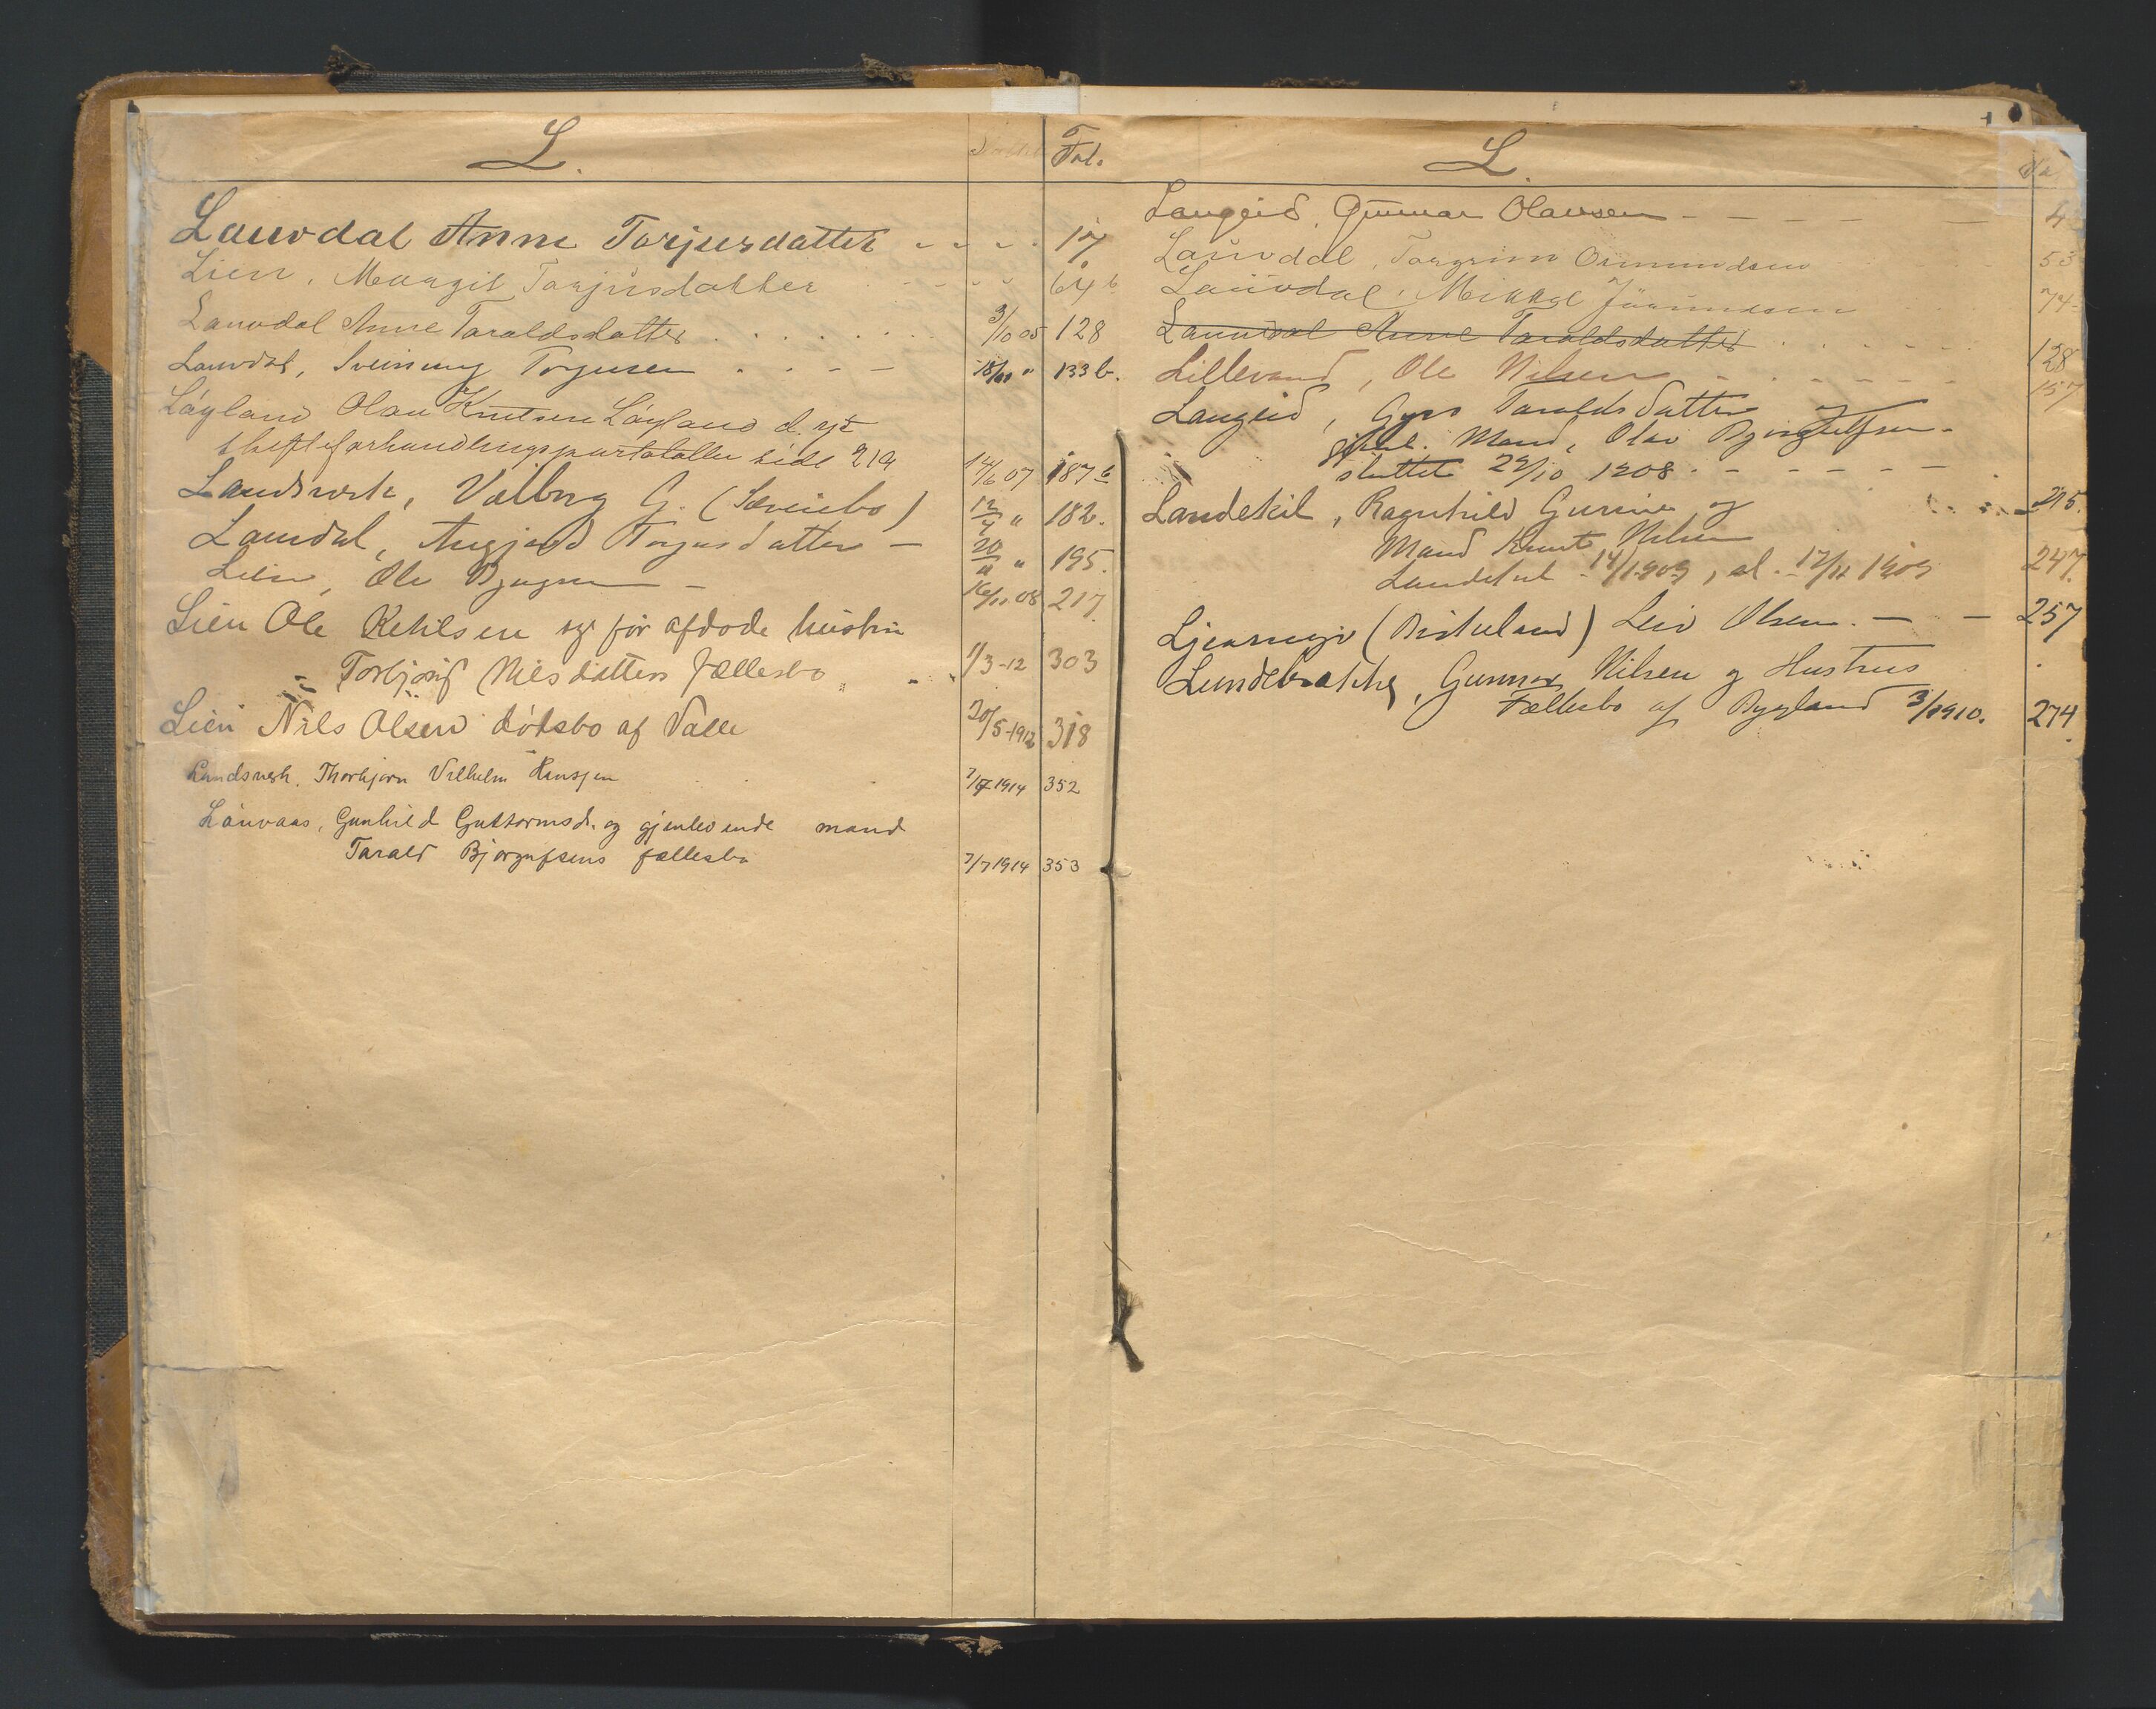 L. Fol.
Lauvdal Anne Torjusdatter - - - - 17
Lien, Margit Tarjusdatter - - - - 64 b
Lauvdal Anne Taraldsdatter . . . . . . 3/10 05 128
Lauvdal, Sveinung Torjusen . . - - 18/11 " 133 b.
Løyland Olau Knutsen Løyland d. y.
skifteforhandlingsprotokollen side 219 14/6 07 187 b
Landsverk, Valborg G. (Særeiebo) 12/7 " 182.
Lauvdal, Angjerd Torjusdatter - 20/11 " 195.
Lien, Ole Bjugsen - 16/11 08 217.
Lien Ole Ketilsen og før afdøde hustru
Torbjørg Nilsdatters fællesbo 1/3-12 303
Lien Nils Olsen dødsbo af Valle 20/5-1912 318
Landsverk. Thorbjørn Vilhelm Hansen 7/7 1914 352
Lauvaas, Gunhild Guttormsdr. og gjenlevende mand
Tarald Bjorgufsens fællesbo 7/7 1914 353
L.
Langeid, Gunnar Olausen - - - - - 4
Lauvdal, Torgrim Ormundsen 53
Lauvdal, Mikkel Jørundsen 74
Lauvdal Anne Taraldsdatter . . . . . . 128
Lillevand, Ole Nilsen - - - - - - 157
Langeid, Gyro Taraldsdatter og
gjenl. Mand, Olav Bjørgulfsen.
sluttet 22/10 1908. - - - - - 215.
Landeskil, Ragnhild Gurine og
Mand Knut Nilsen
14/1 1909, sl. 17/12 1909 247.
(Birkeland) Leiv Olsen. - - 257
Lundebrække, Gunnar Nilsen og Hustrus
Fællesbo af Bygland 3/8 1910. 274.